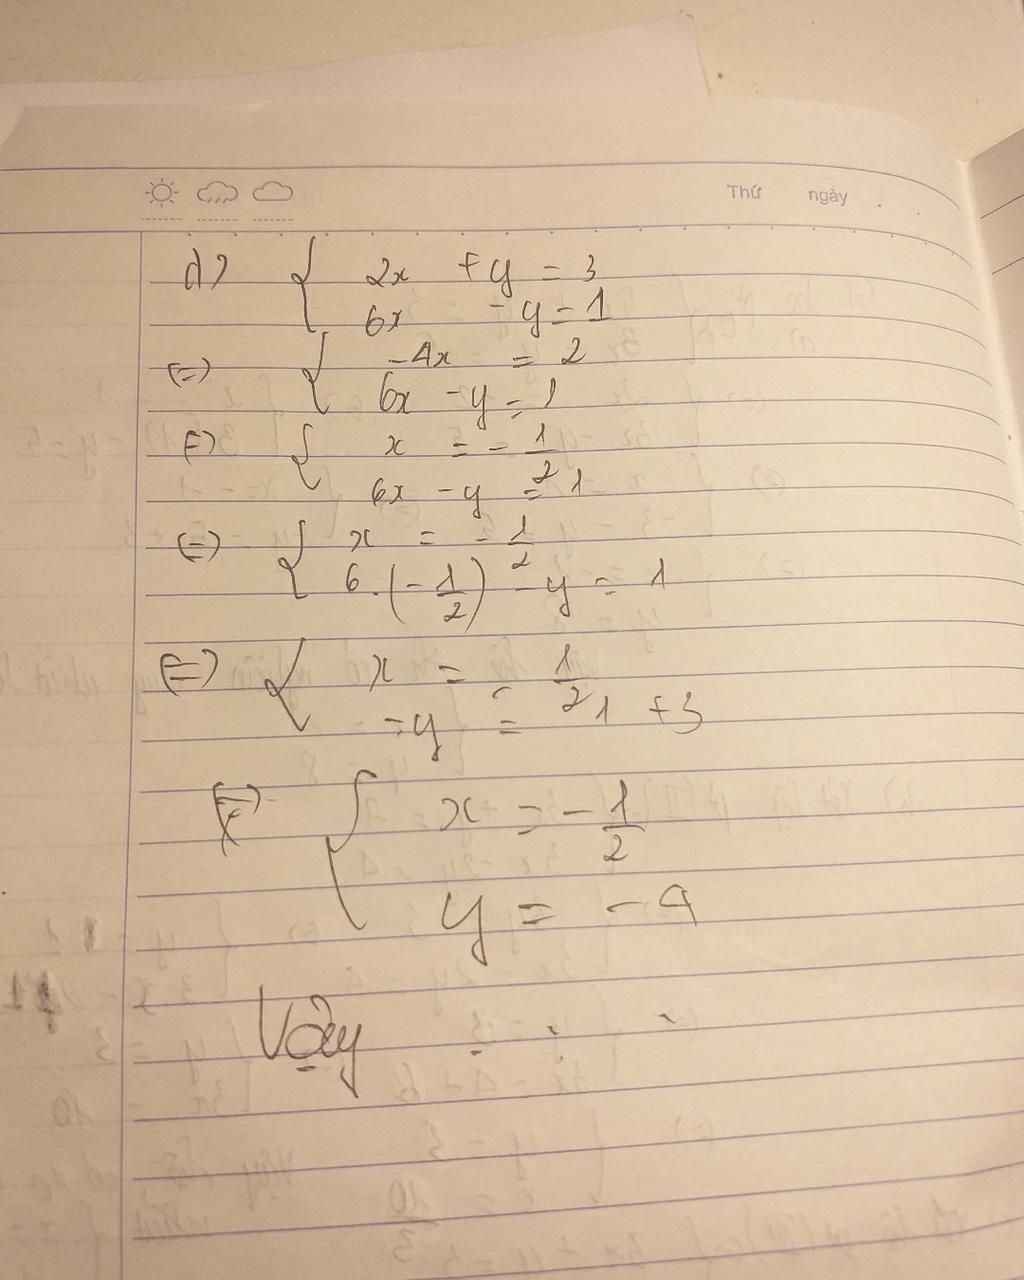 Thứ ngày
d) { 2x + y = 3
6x - y = 1
(=) { -4x = 2
6x - y = 1
(=) { x = - 1/2
6x - y = 1
(=) { x = - 1/2
6. (- 1/2) - y = 1
(=) { x = - 1/2
- y = 1 + 3
(=) { x = - 1/2
y = - 4
Vậy . . .